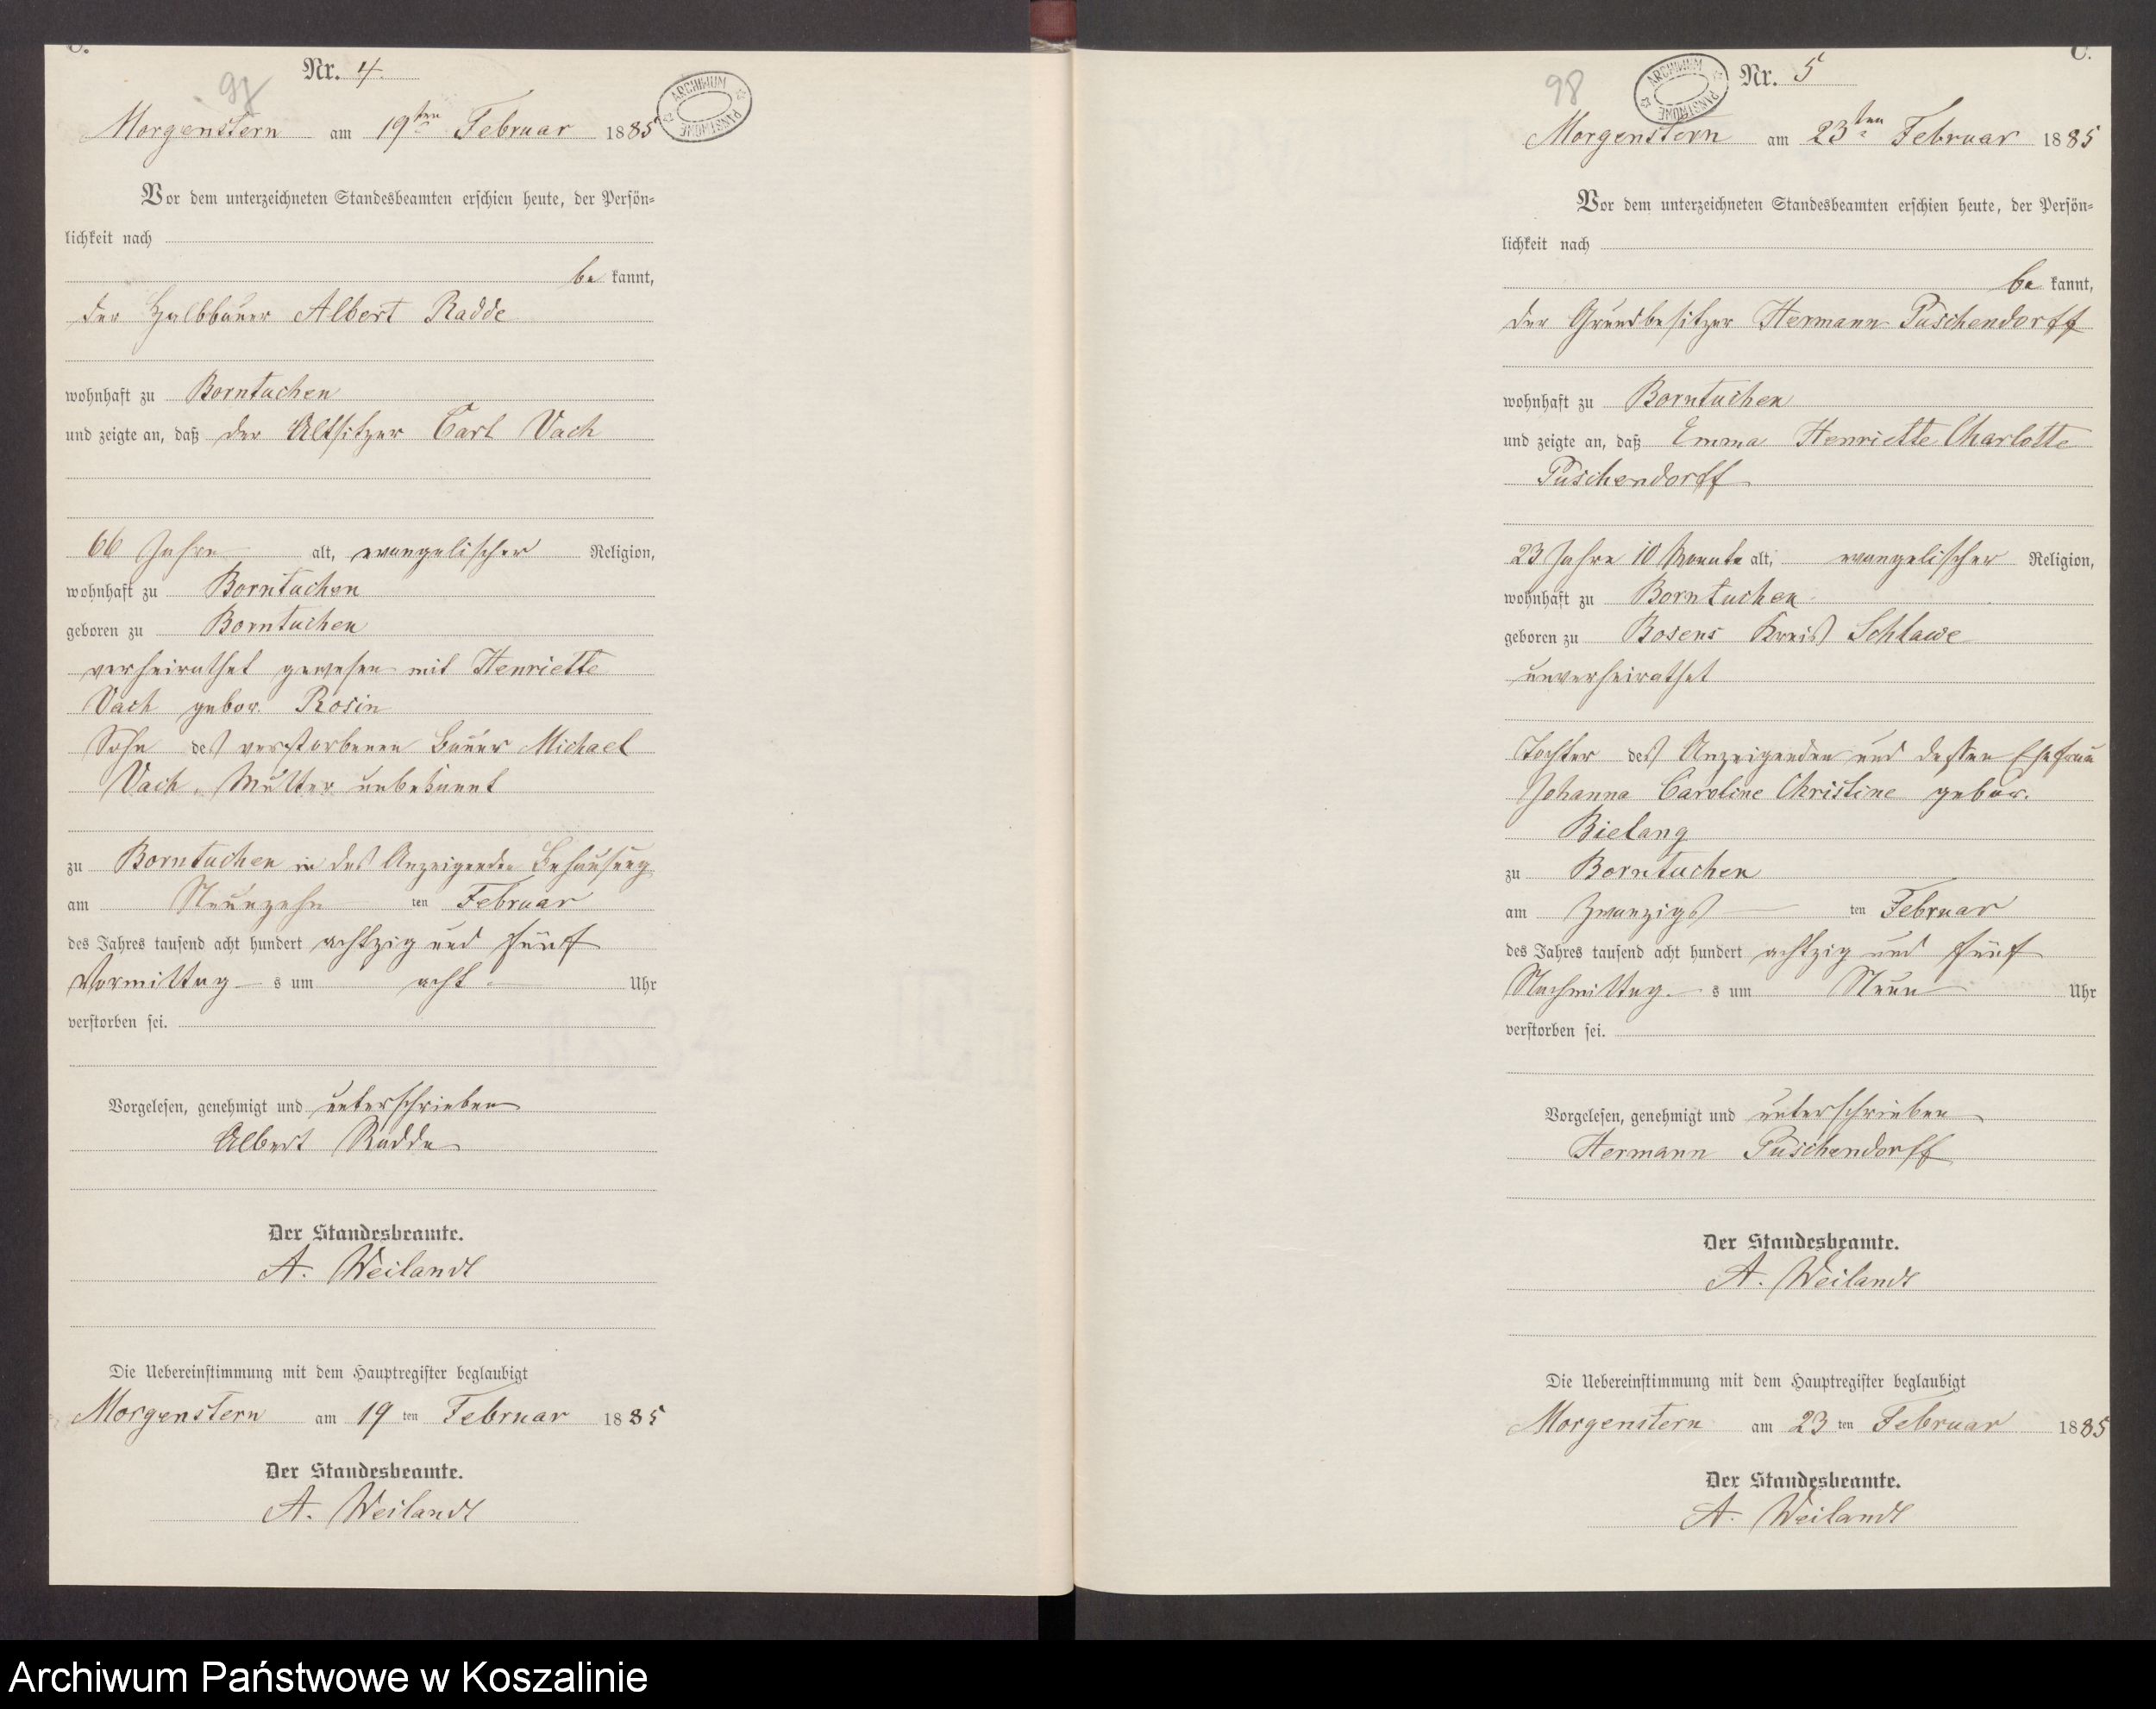 C.
97
Nr. 4.
ARCHIWUM PAŃSTWOWE
Morgenstern am 19ten Februar 1885
Vor dem unterzeichneten Standesbeamten erschien heute, der Persön-
lichkeit nach
be kannt,
der Halbbauer Albert Radde
wohnhaft zu Borntuchen
und zeigte an, daß der Altsitzer Carl Vach
66 Jahre alt, evangelischer Religion,
wohnhaft zu Borntuchen
geboren zu Borntuchen
verheirathet gewesen mit Henriette
Vach gebor. Rosin
Sohn des verstorbenen Bauer Michael
Vach, Mutter unbekannt
zu Borntuchen in des Anzeigenden Behausung
am Neunzehn ten Februar
des Jahres tausend acht hundert achtzig und fünf
Vormittag s um acht Uhr
verstorben sei.
Vorgelesen, genehmigt und unterschrieben
Albert Radde
Der Standesbeamte.
A. Weilandt
Die Uebereinstimmung mit dem Hauptregister beglaubigt
Morgenstern am 19 ten Februar 1885
Der Standesbeamte.
A. Weilandt
C.
98
ARCHIWUM PAŃSTWOWE
Nr. 5
Morgenstern am 23ten Februar 1885
Vor dem unterzeichneten Standesbeamten erschien heute, der Persön-
lichkeit nach
be kannt,
der Grundbesitzer Hermann Puschendorff
wohnhaft zu Borntuchen
und zeigte an, daß Emma Henriette Charlotte
Puschendorff
23 Jahre 10 Monate alt, evangelischer Religion,
wohnhaft zu Borntuchen
geboren zu Bosens Kreis Schlawe
unverheirathet
Tochter des Anzeigenden und dessen Ehefrau
Johanna Caroline Christine gebor.
Bielang
zu Borntuchen
am Zwanzigs ten Februar
des Jahres tausend acht hundert achtzig und fünf
Nachmittag s um Neun Uhr
verstorben sei.
Vorgelesen, genehmigt und unterschrieben
Hermann Puschendorff
Der Standesbeamte.
A. Weilandt
Die Uebereinstimmung mit dem Hauptregister beglaubigt
Morgenstern am 23 ten Februar 1885
Der Standesbeamte.
A. Weilandt
Archiwum Państwowe w Koszalinie